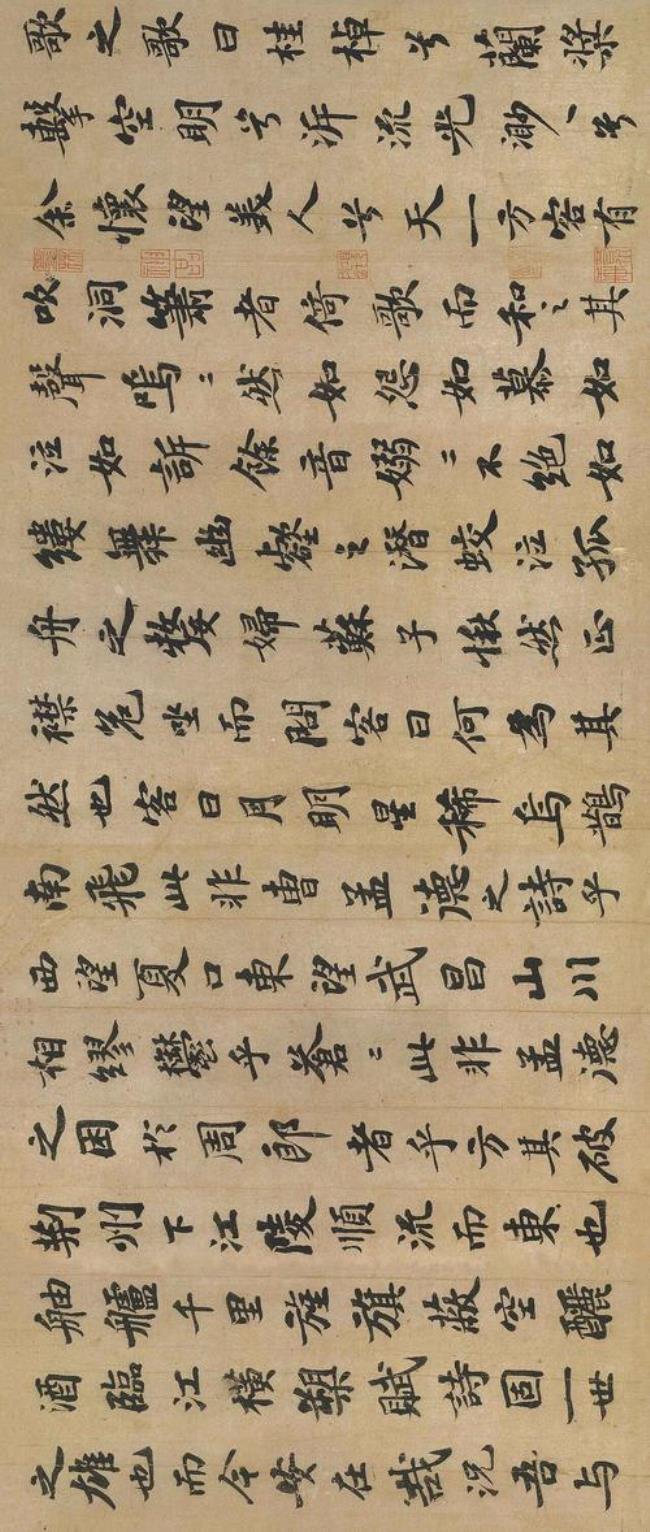 歌之歌曰桂棹兮蘭槳
擊空明兮泝流光渺〻兮
余懷望美人兮天一方客有
吹洞簫者倚歌而和之其
聲嗚〻然如怨如慕如
泣如訴餘音嫋〻不絕如
縷舞幽壑之潛蛟泣孤
舟之嫠婦蘇子愀然正
襟危坐而問客曰何為其
然也客曰月明星稀烏鵲
南飛此非曹孟德之詩乎
西望夏口東望武昌山川
相繆鬱乎蒼〻此非孟德
之困於周郎者乎方其破
荊州下江陵順流而東也
舳艫千里旌旗蔽空釃
酒臨江橫槊賦詩固一世
之雄也而今安在哉況吾与